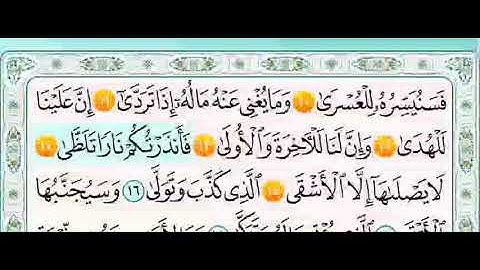 فَسَنُيَسِّرُهُۥ لِلْعُسْرَىٰ ١٠ وَمَا يُغْنِى عَنْهُ مَالُهُۥٓ إِذَا تَرَدَّىٰٓ ١١ إِنَّ عَلَيْنَا
لَلْهُدَىٰ ١٢ وَإِنَّ لَنَا لَلْءَاخِرَةَ وَٱلْأُولَىٰ ١٣ فَأَنذَرْتُكُمْ نَارًا تَلَظَّىٰ ١٤
لَا يَصْلَىٰهَآ إِلَّا ٱلْأَشْقَى ١٥ ٱلَّذِى كَذَّبَ وَتَوَلَّىٰ ١٦ وَسَيُجَنَّبُهَا